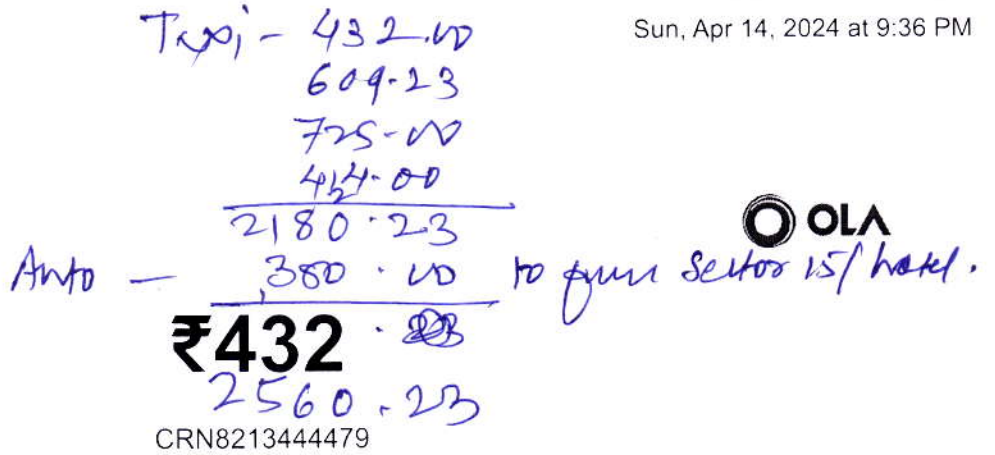 Taxi - 432.00
Sun, Apr 14, 2024 at 9:36 PM
609.23
725-00
414.00
2180.23
OLA
Auto - 380.00 to from Sector 15/ hotel.
₹432 . 23
2560.23
CRN8213444479